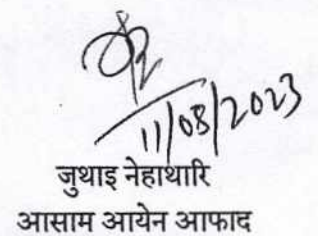 11/08/2023
जुथाइ नेहाथारि
आसाम आयेन आफाद